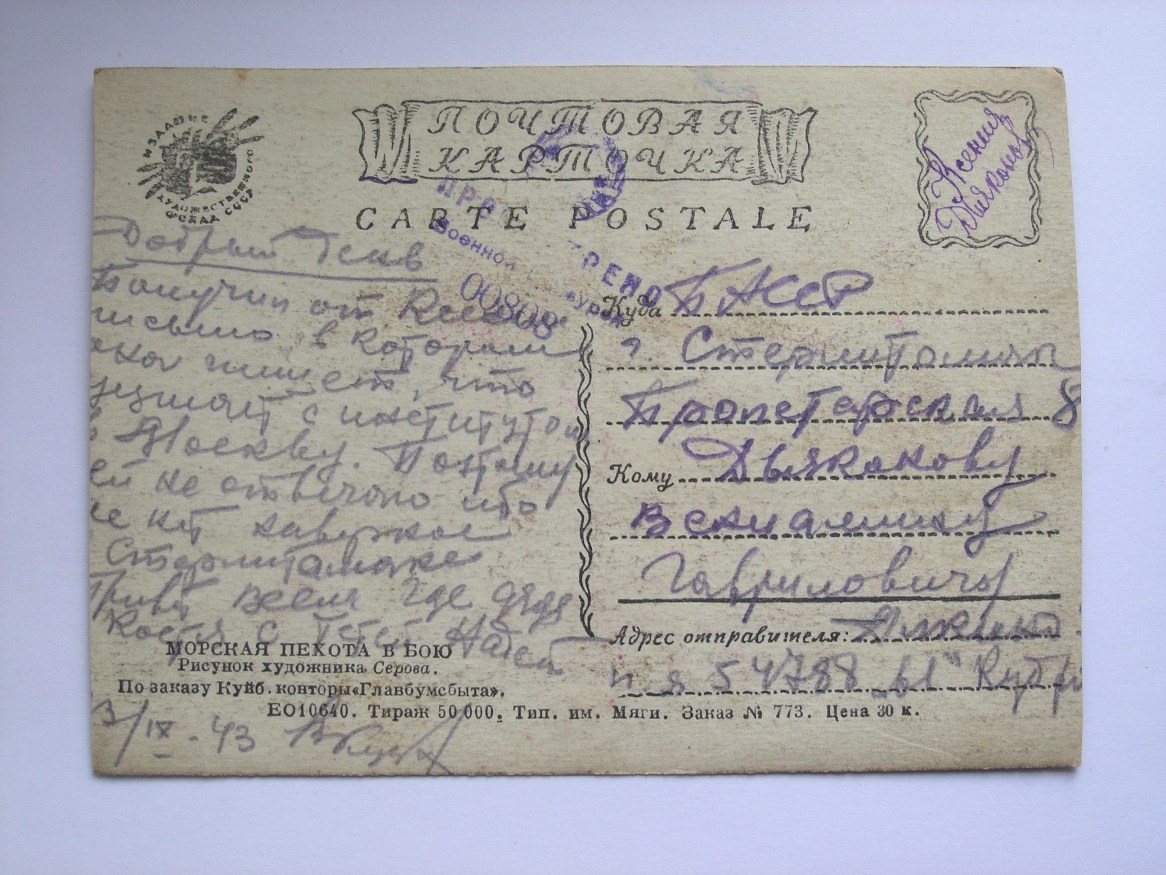 ИЗДАНИЕ
ХУДОЖЕСТВЕННОГО
ФОНДА СССР
ПОЧТОВАЯ
КАРТОЧКА
CARTE POSTALE
Ксения
Дьяконов
Военной
00808
Добрый День
Получил от Ксении
письмо в котором
она пишет, что
уезжает с институтом
в Москву. Поэтому
ей не отвечаю ибо
ее нет наверное
Стерлитамаке
Привет всем где дядя
Костя с тетей Надей
3/IX-43
Куда БАССР
г. Стерлитамак
Пролетарская 8
Кому Дьяконову
Вениамину
Гавриловичу
Адрес отправителя:
п я 54788
МОРСКАЯ ПЕХОТА В БОЮ
Рисунок художника Серова.
По заказу Куйб. конторы «Главбумсбыта».
ЕО10640. Тираж 50 000. Тип. им. Мяги. Заказ № 773. Цена 30 к.